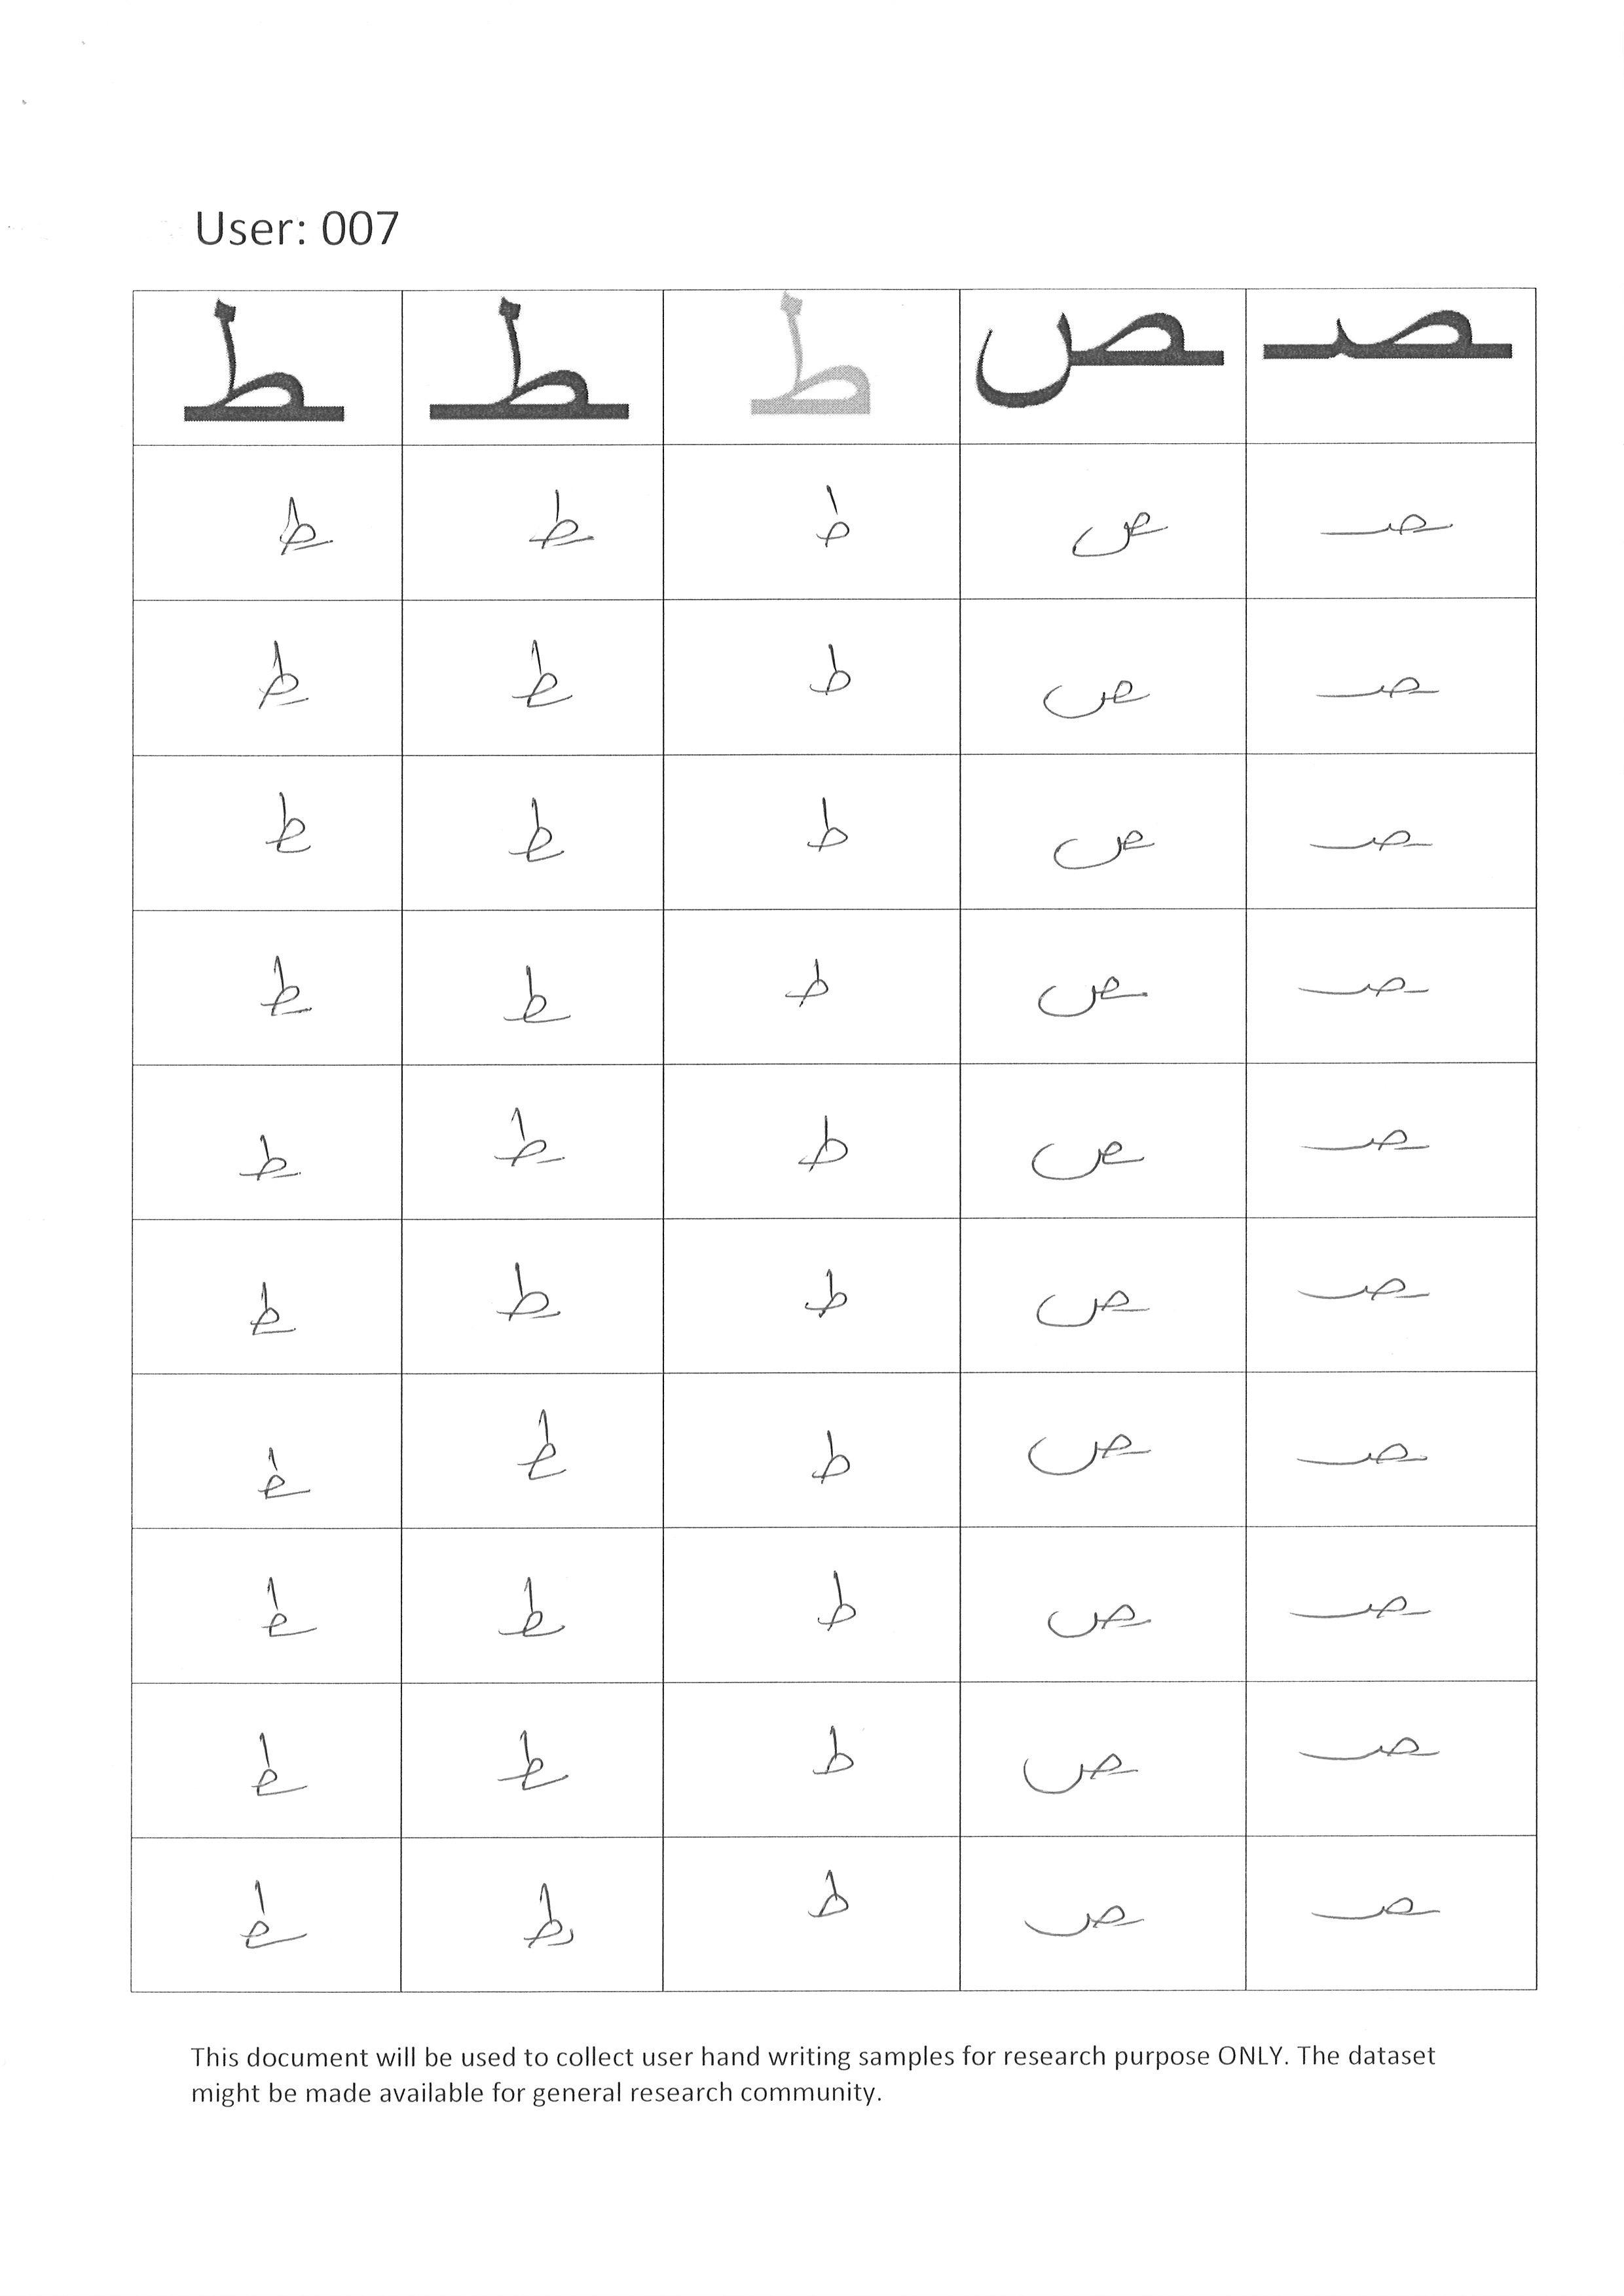 User: 007
ـصـ ـص ط ـطـ ـط
ـصـ ـص ط ـطـ ـط
ـصـ ـص ط ـطـ ـط
ـصـ ـص ط ـطـ ـط
ـصـ ـص ط ـطـ ـط
ـصـ ـص ط ـطـ ـط
ـصـ ـص ط ـطـ ـط
ـصـ ـص ط ـطـ ـط
ـصـ ـص ط ـطـ ـط
ـصـ ـص ط ـطـ ـط
ـصـ ـص ط ـطـ ـط
This document will be used to collect user hand writing samples for research purpose ONLY. The dataset
might be made available for general research community.